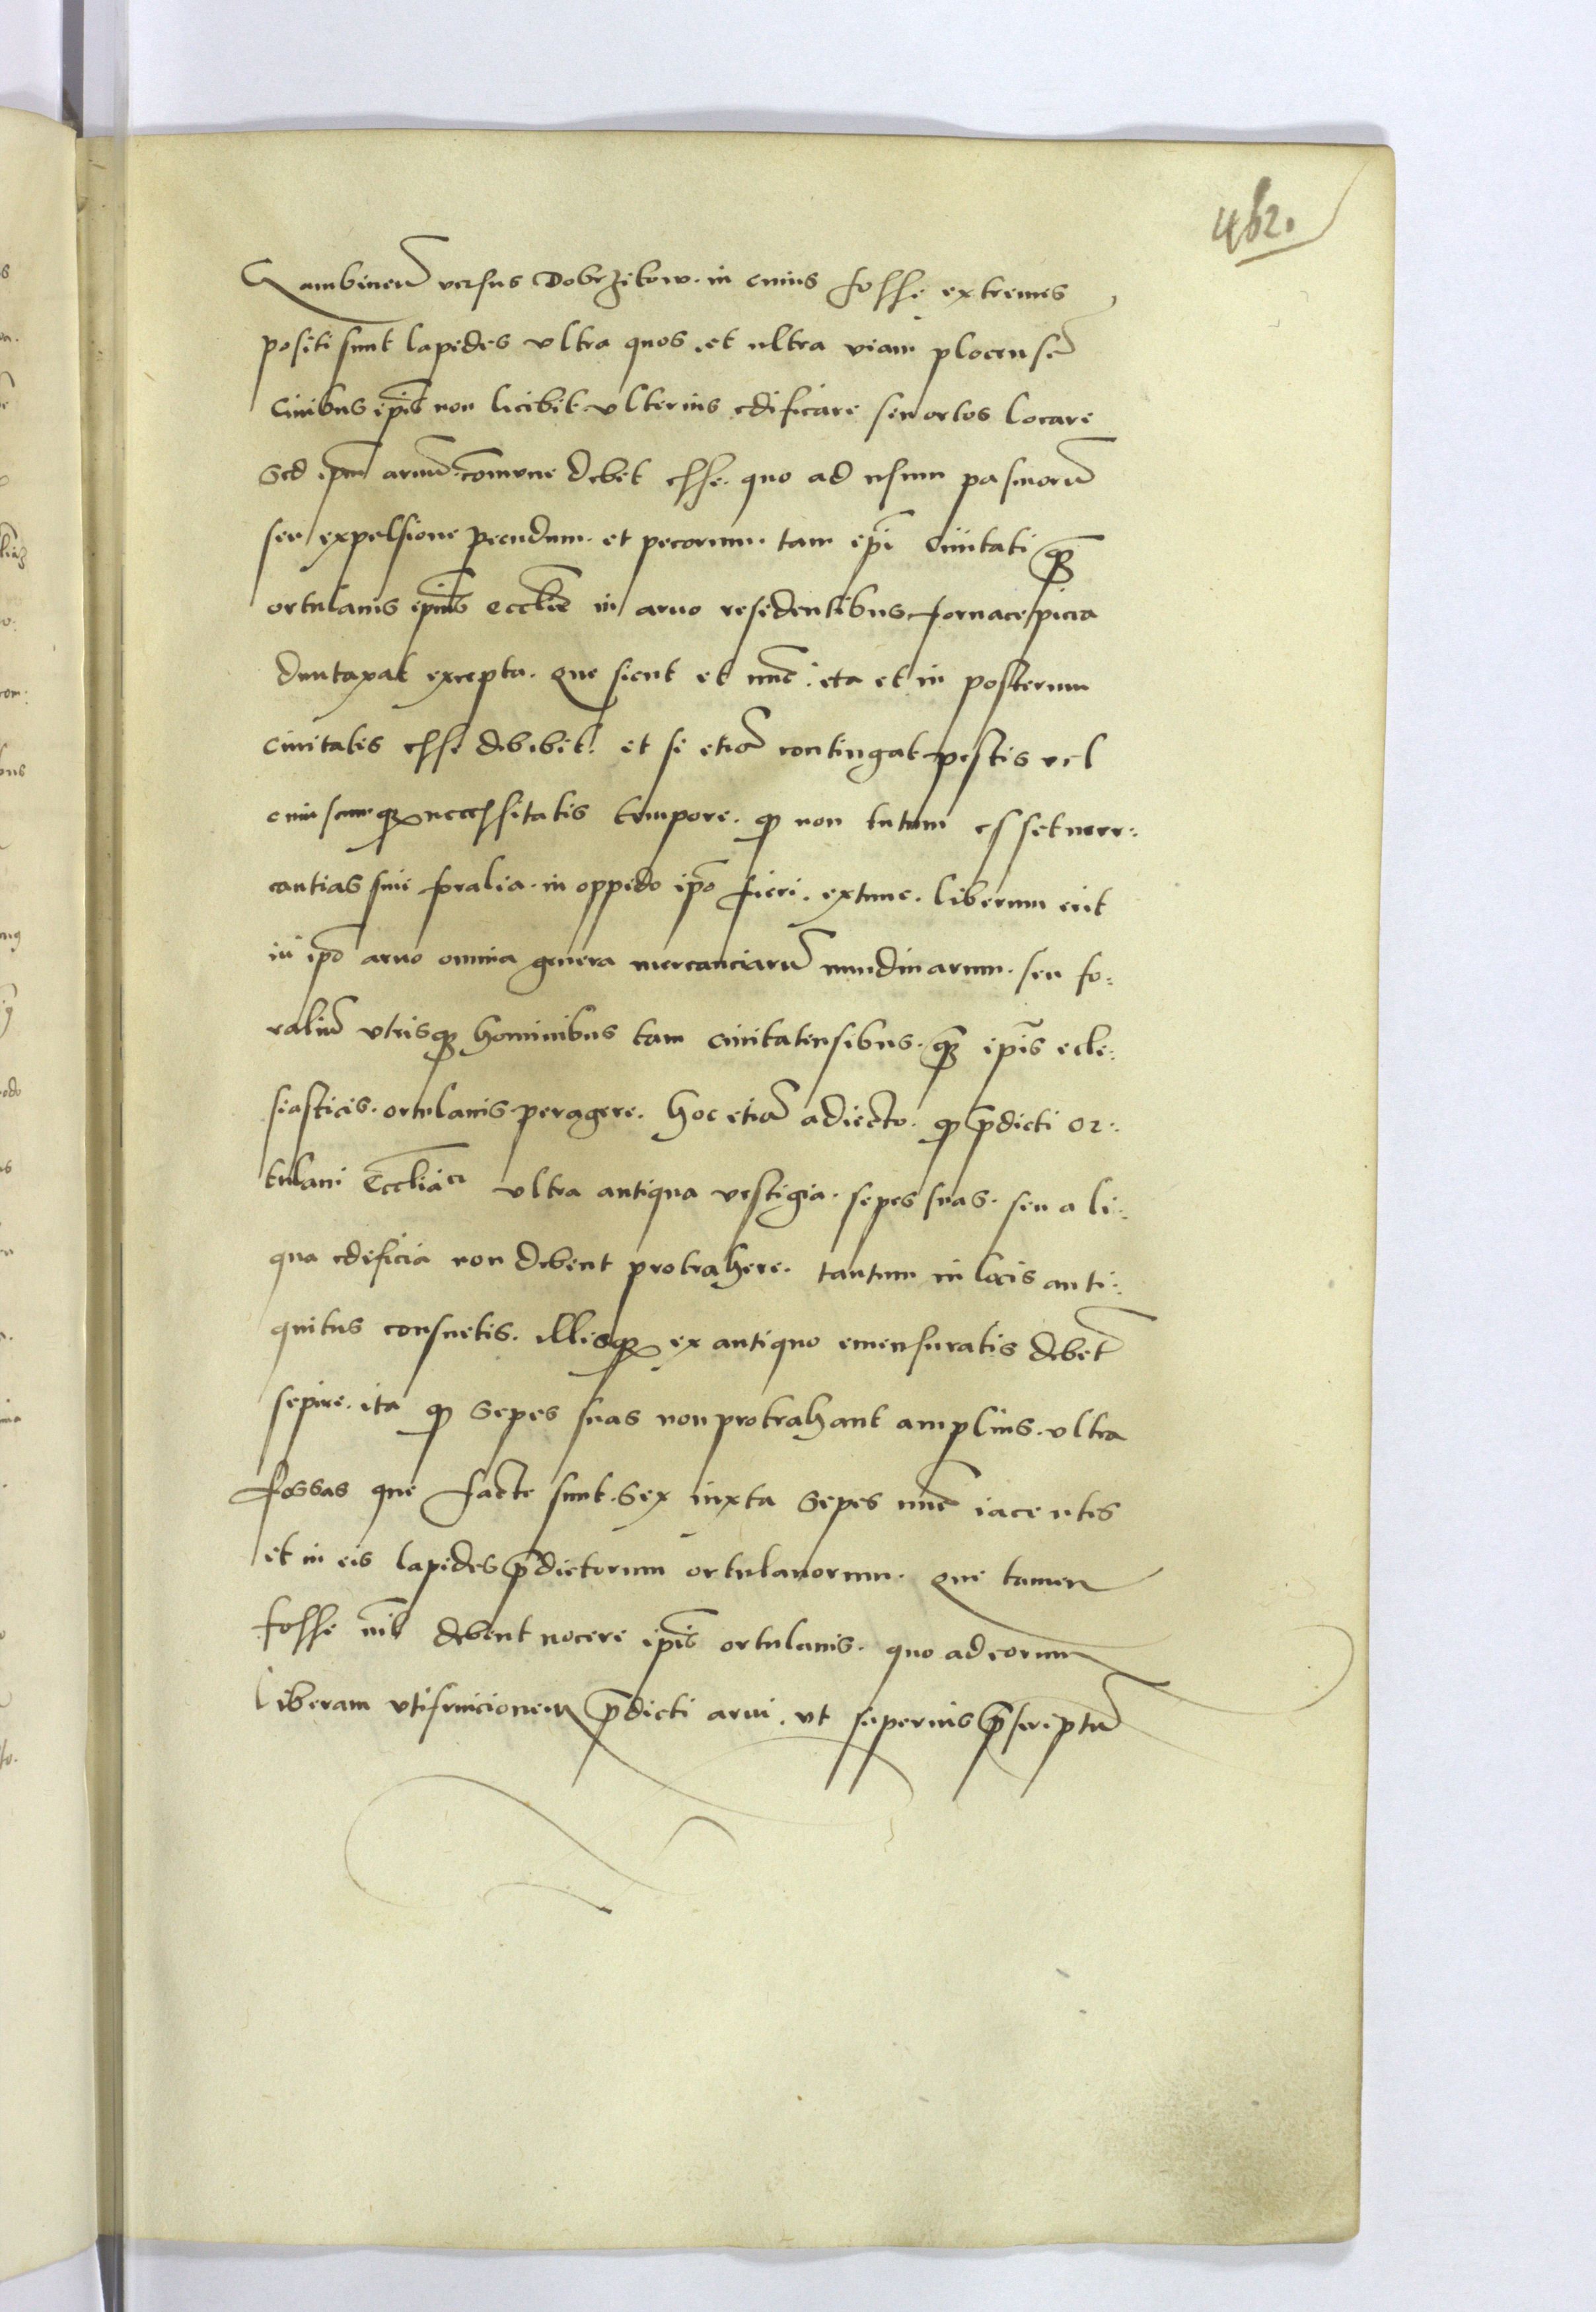 462.
Gambinen̄ versus Dobrzikow. in cuius fosse extremes
positi sunt lapides vltra quos et ultra viam plocensē
Ciuibus ip̄is non licibit vlterius edificare seu ortos locare
Sed ip̄m aruū com̄une debet esse. quo ad usum pascuorū
seu expulsione pecudum. et pecorum. tam ip̄i Ciuitati q̄
ortulanis ip̄ius eccl̄ie in aruo residentibus fornace picea
duntaxat excepta. que sicut et nūc. ita et in posterum
Ciuitatis esse debebit. et si etiā contingat pestis vel
cuiuscumq; necessitatis tempore. q̄ non tutum esset merr:
cantias siue foralia. in oppido ip̄o fieri. extunc. liberum erit
in ip̄o aruo omnia genera mercanciarū nundinarum. seu fo:
raliū vtrisq; hominibus tam ciuitatensibus. q̄ ip̄is ecle:
siasticis. ortulanis peragere. Hoc etiā adiecto. q̄ p̄dicti or:
tulani Eccl̄iaci vltra antiqua vestigia. sepes suas. seu ali:
qua edificia non debent protrahere. tantum in locis anti:
quitus consuetis. illisq; ex antiquo emensuratis debēt
sepire. ita q̄ Sepes suas non protrahant amplius. vltra
fossas que facte sunt. Sex iuxta Sepes nūc iacentes
et in eis lapides p̄dictorum ortulanorum. que tamen
fosse nīl debent nocere ip̄is ortulanis. quo ad eorum
liberam vtifruicionem p̄dicti arui. vt superius p̄scriptū